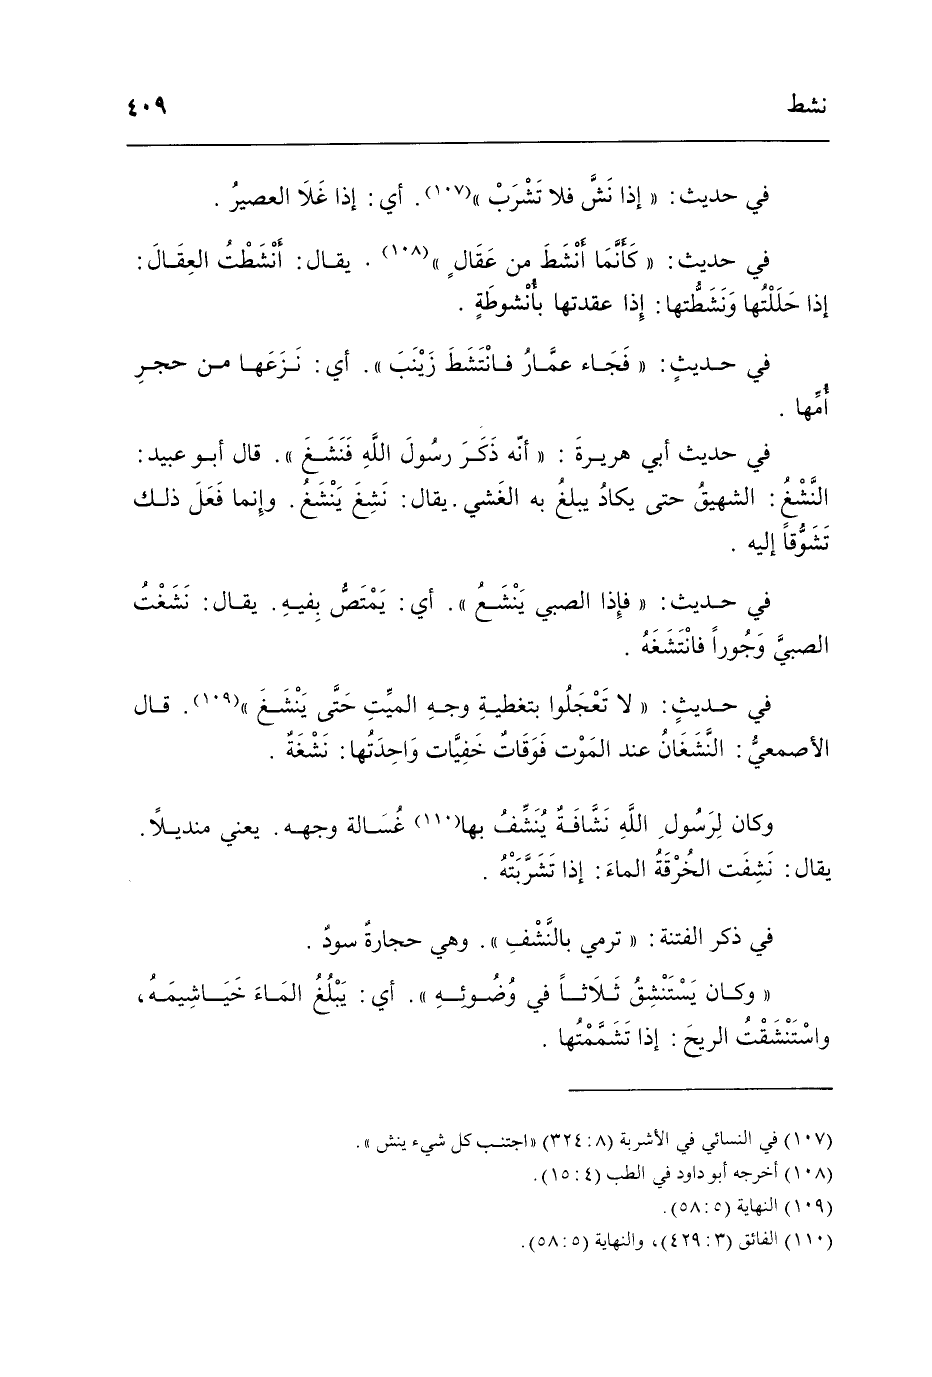 نشط ٤٠٩
في حديث: « إذا نَشَّ فلا تَشْرَبْ »(١٠٧). أي: إذا غَلَا العصيرُ .
في حديث: « كَأَنَّمَا أُنْشَطَ من عَقَالٍ »(١٠٨) . يقال: أَنْشَطْتُ العِقَالَ:
إذا حَلَلْتُها وَنَشَطُّتها: إِذا عقدتها بأُنْشوطَةٍ .
في حديثٍ: « فَجَاء عمَّارُ فانْتَشَطَ زَيْنَبَ ». أي: نَزَعَها من حجرِ
أُمِّها .
في حديث أبي هريرةَ : « أنّه ذَكَرَ رسُولَ اللَّهِ فَنَشَغَ ». قال أبو عبيد:
النَّشْغُ: الشهيقُ حتى يكادُ يبلغُ به الغَشي. يقال: نَشِغَ يَنْشَغُ. وإنما فَعَلَ ذلك
تَشَوُّقاً إليه .
في حديث: « فإذا الصبي يَنْشَعُ ». أي: يَمْتَصُّ بِفيهِ. يقال: نَشَغْتُ
الصبيَّ وَجُوراً فانْتَشَغَهُ .
في حديثٍ: « لا تَعْجَلُوا بتغطيةِ وجهِ الميِّتِ حَتَّى يَنْشَغَ »(١٠٩). قال
الأصمعيُّ: النَّشَغَانُ عند المَوْت فَوَقَاتٌ خَفِيَّات وَاحِدَتُها: نَشْغَةٌ .
وكان لِرَسُولِ اللَّهِ نَشَّافَةٌ يُنَشِّفُ بها(١١٠) غُسَالة وجهه. يعني منديلاً.
يقال: نَشِفَت الخُرْقَةُ الماءَ: إذا تَشَرَّبَتْهُ .
في ذكر الفتنة: « ترمي بالنَّشْفِ ». وهي حجارةٌ سودٌ .
« وكان يَسْتَنْشِقُ ثَلَاثاً في وُضُوئِهِ ». أي: يَبْلُغُ المَاءَ خَيَاشِيمَهُ،
واسْتَنْشَقْتُ الريحَ: إذا تَشَمَّمْتُها .
(١٠٧) في النسائي في الأشربة (٨: ٣٢٤) «اجتنب كل شيء ينش ».
(١٠٨) أخرجه أبو داود في الطب (٤: ١٥).
(١٠٩) النهاية (٥: ٥٨).
(١١٠) الفائق (٣: ٤٢٩)، والنهاية (٥: ٥٨).